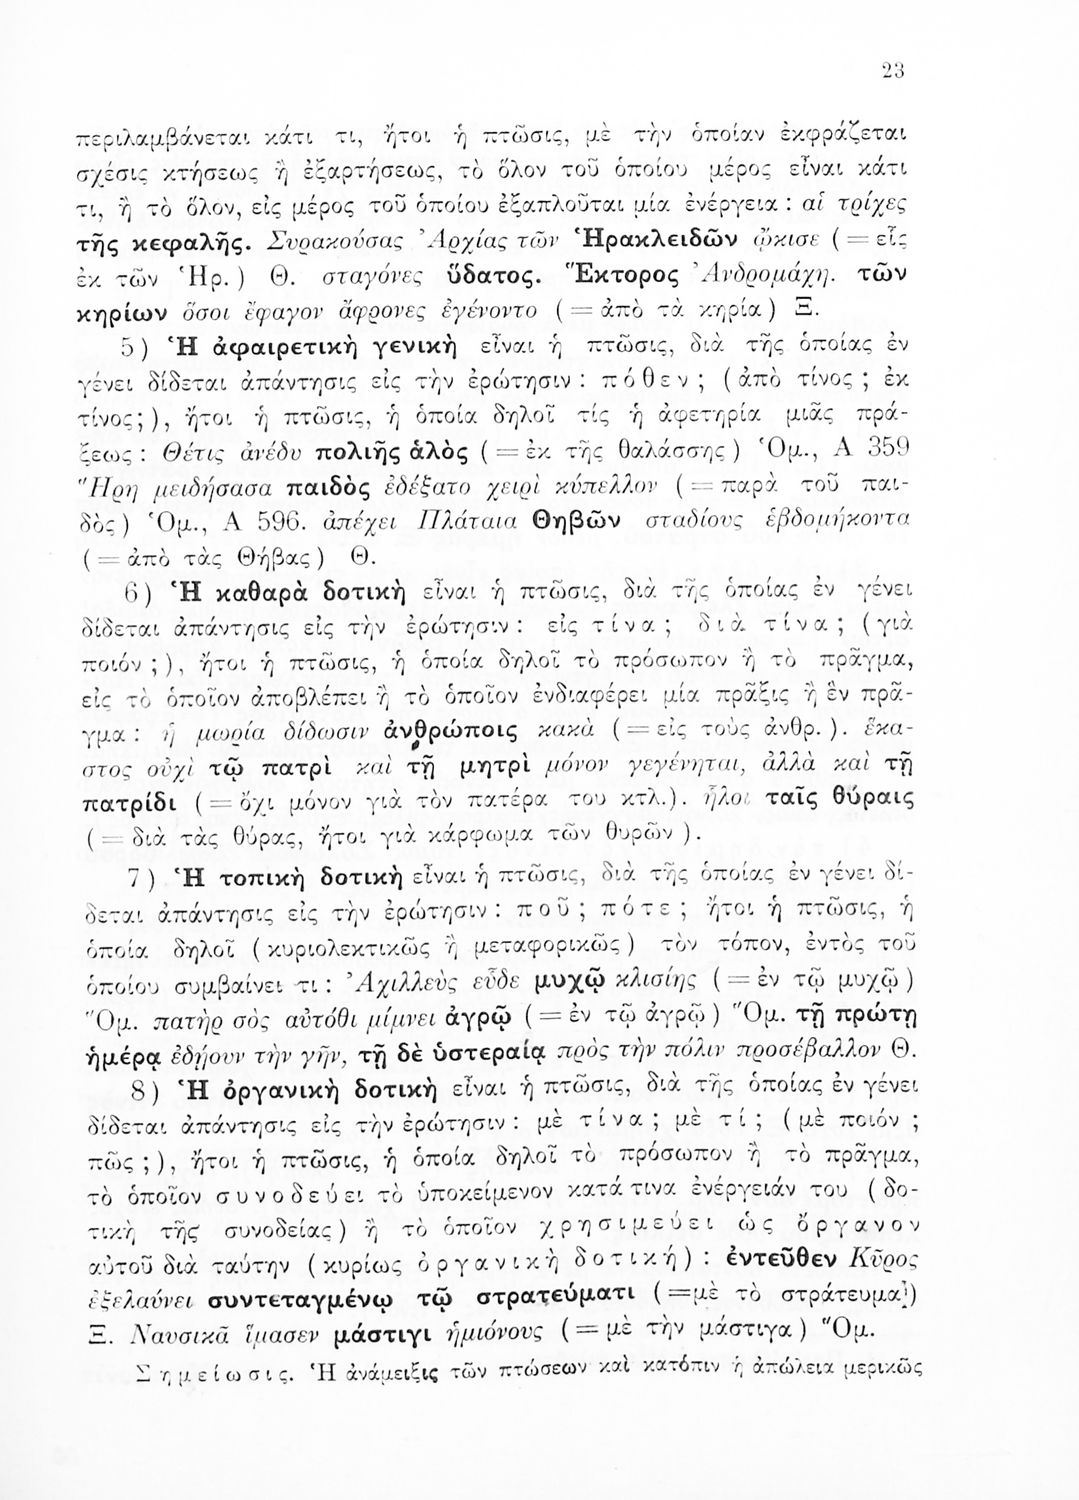 23
περιλαμβάνεται κάτι τι, ἤτοι ἡ πτῶσις, μὲ τὴν ὁποίαν ἐκφράζεται
σχέσις κτήσεως ἢ ἐξαρτήσεως, τὸ ὅλον τοῦ ὁποίου μέρος εἶναι κάτι
τι, ἢ τὸ ὅλον, εἰς μέρος τοῦ ὁποίου ἐξαπλοῦται μία ἐνέργεια : αἱ τρίχες
τῆς κεφαλῆς. Συρακούσας Ἀρχίας τῶν Ἡρακλειδῶν ᾤκισε ( = εἷς
ἐκ τῶν Ἡρ. ) Θ. σταγόνες ὕδατος. Ἕκτορος Ἀνδρομάχη. τῶν
κηρίων ὅσοι ἔφαγον ἄφρονες ἐγένοντο ( = ἀπὸ τὰ κηρία ) Ξ.
5 ) Ἡ ἀφαιρετικὴ γενικὴ εἶναι ἡ πτῶσις, διὰ τῆς ὁποίας ἐν
γένει δίδεται ἀπάντησις εἰς τὴν ἐρώτησιν : πόθεν ; ( ἀπὸ τίνος ; ἐκ
τίνος ; ), ἤτοι ἡ πτῶσις, ἡ ὁποία δηλοῖ τίς ἡ ἀφετηρία μιᾶς πρά-
ξεως : Θέτις ἀνέδυ πολιῆς ἁλὸς ( = ἐκ τῆς θαλάσσης ) Ὁμ., Α 359
Ἥρη μειδήσασα παιδὸς ἐδέξατο χειρὶ κύπελλον ( = παρὰ τοῦ παι-
δὸς ) Ὁμ., Α 596. ἀπέχει Πλάταια Θηβῶν σταδίους ἑβδομήκοντα
( = ἀπὸ τὰς Θήβας ) Θ.
6 ) Ἡ καθαρὰ δοτικὴ εἶναι ἡ πτῶσις, διὰ τῆς ὁποίας ἐν γένει
δίδεται ἀπάντησις εἰς τὴν ἐρώτησιν : εἰς τίνα ; διὰ τίνα ; ( γιὰ
ποιόν ; ), ἤτοι ἡ πτῶσις, ἡ ὁποία δηλοῖ τὸ πρόσωπον ἢ τὸ πρᾶγμα,
εἰς τὸ ὁποῖον ἀποβλέπει ἢ τὸ ὁποῖον ἐνδιαφέρει μία πρᾶξις ἢ ἓν πρᾶ-
γμα : ἡ μωρία δίδωσιν ἀνθρώποις κακὰ ( = εἰς τοὺς ἀνθρ. ). ἕκα-
στος οὐχὶ τῷ πατρὶ καὶ τῇ μητρὶ μόνον γεγένηται, ἀλλὰ καὶ τῇ
πατρίδι ( = ὄχι μόνον γιὰ τὸν πατέρα του κτλ. ). ἧλοι ταῖς θύραις
( = διὰ τὰς θύρας, ἤτοι γιὰ κάρφωμα τῶν θυρῶν ).
7 ) Ἡ τοπικὴ δοτικὴ εἶναι ἡ πτῶσις, διὰ τῆς ὁποίας ἐν γένει δί-
δεται ἀπάντησις εἰς τὴν ἐρώτησιν : ποῦ ; πότε ; ἤτοι ἡ πτῶσις, ἡ
ὁποία δηλοῖ ( κυριολεκτικῶς ἢ μεταφορικῶς ) τὸν τόπον, ἐντὸς τοῦ
ὁποίου συμβαίνει τι : Ἀχιλλεὺς εὗδε μυχῷ κλισίης ( = ἐν τῷ μυχῷ )
Ὅμ. πατὴρ σὸς αὐτόθι μίμνει ἀγρῷ ( = ἐν τῷ ἀγρῷ ) Ὅμ. τῇ πρώτῃ
ἡμέρᾳ ἐδῄουν τὴν γῆν, τῇ δὲ ὑστεραίᾳ πρὸς τὴν πόλιν προσέβαλλον Θ.
8 ) Ἡ ὀργανικὴ δοτικὴ εἶναι ἡ πτῶσις, διὰ τῆς ὁποίας ἐν γένει
δίδεται ἀπάντησις εἰς τὴν ἐρώτησιν : μὲ τίνα ; μὲ τί ; ( μὲ ποιόν ;
πῶς ; ), ἤτοι ἡ πτῶσις, ἡ ὁποία δηλοῖ τὸ πρόσωπον ἢ τὸ πρᾶγμα,
τὸ ὁποῖον συνοδεύει τὸ ὑποκείμενον κατά τινα ἐνέργειάν του ( δο-
τικὴ τῆς συνοδείας ) ἢ τὸ ὁποῖον χρησιμεύει ὡς ὄργανον
αὐτοῦ διὰ ταύτην ( κυρίως ὀργανικὴ δοτική ) : ἐντεῦθεν Κῦρος
ἐξελαύνει συντεταγμένῳ τῷ στρατεύματι ( = μὲ τὸ στράτευμα )
Ξ. Ναυσικᾶ ἵμασεν μάστιγι ἡμιόνους ( = μὲ τὴν μάστιγα ) Ὅμ.
Σημείωσις. Ἡ ἀνάμειξις τῶν πτώσεων καὶ κατόπιν ἡ ἀπώλεια μερικῶς